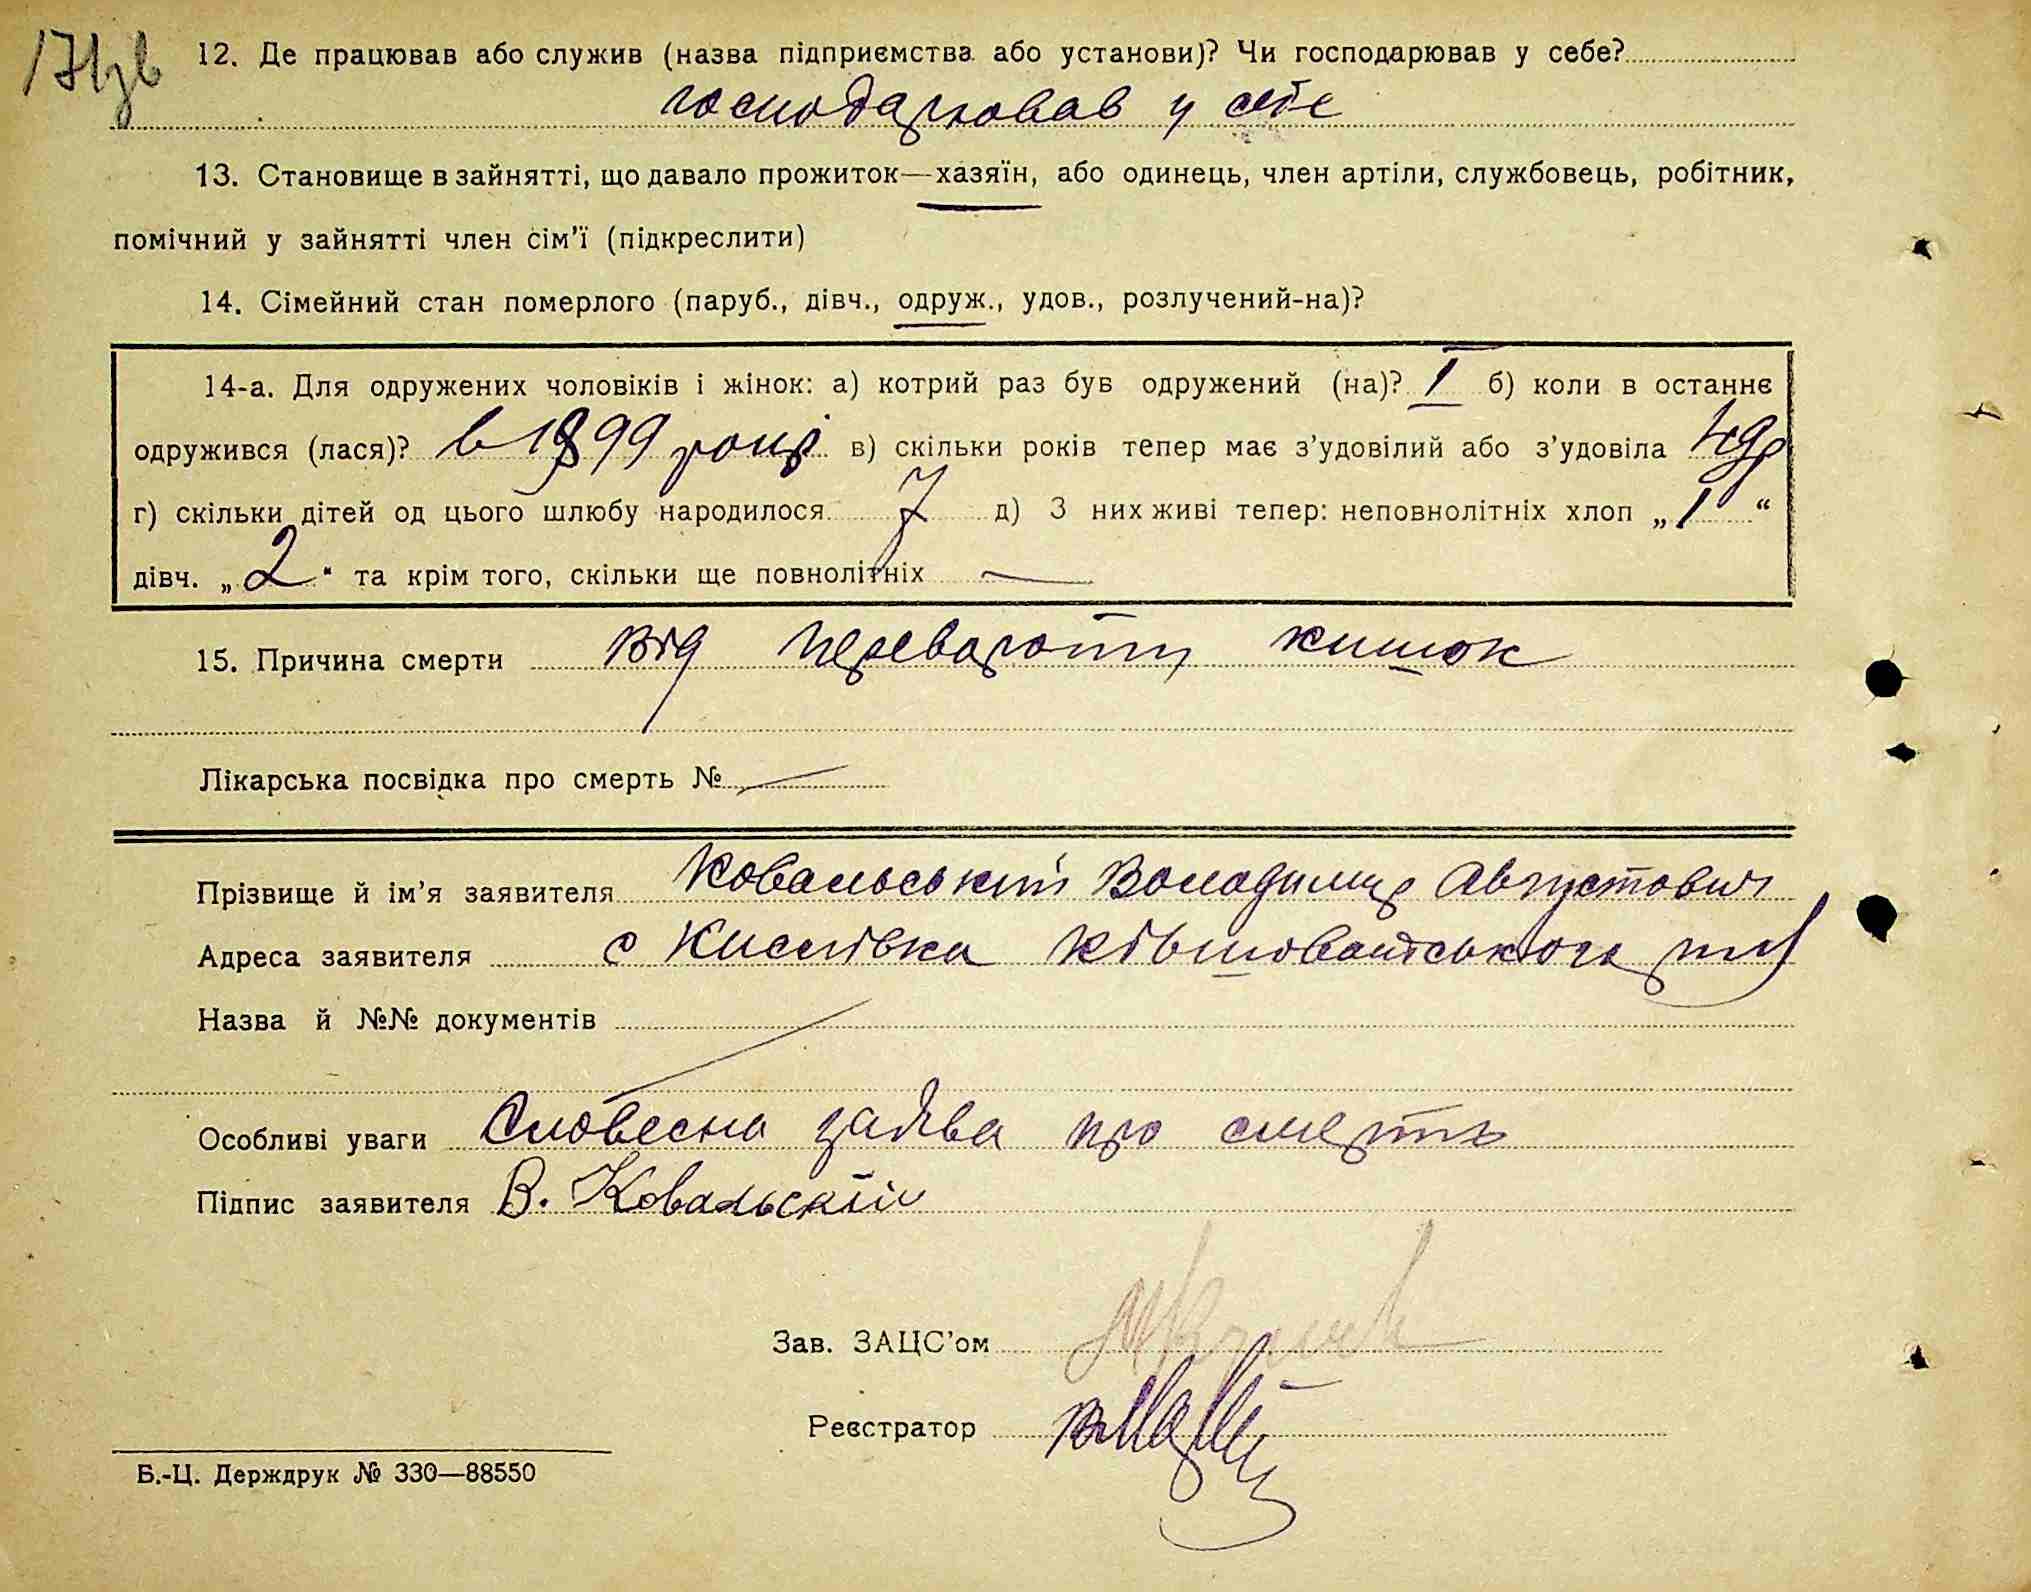 171зв
12. Де працював або служив (назва підприємства або установи)? Чи господарював у себе?
господарював у себе
13. Становище в зайнятті, що давало прожиток—хазяїн, або одинець, член артіли, службовець, робітник,
помічний у зайнятті член сім'ї (підкреслити)
14. Сімейний стан померлого (паруб., дівч., одруж., удов., розлучений-на)?
14-а. Для одружених чоловіків і жінок: а) котрий раз був одружений (на)? I б) коли в останнє
одружився (лася)? в 1899 році в) скільки років тепер має з'удовілий або з'удовіла 49р
г) скільки дітей од цього шлюбу народилося 7 д) З них живі тепер: неповнолітніх хлоп „1“
дівч. „2“ та крім того, скільки ще повнолітніх —
15. Причина смерти від перевароту кишок
Лікарська посвідка про смерть № —
Прізвище й ім'я заявителя Ковальський Володимир Августович
Адреса заявителя с Киселівка
Назва й №№ документів
Особливі уваги Словесна заява про смерть
Підпис заявителя В. Ковальскій
Зав. ЗАЦС'ом
Реєстратор
Б.-Ц. Держдрук № 330—88550